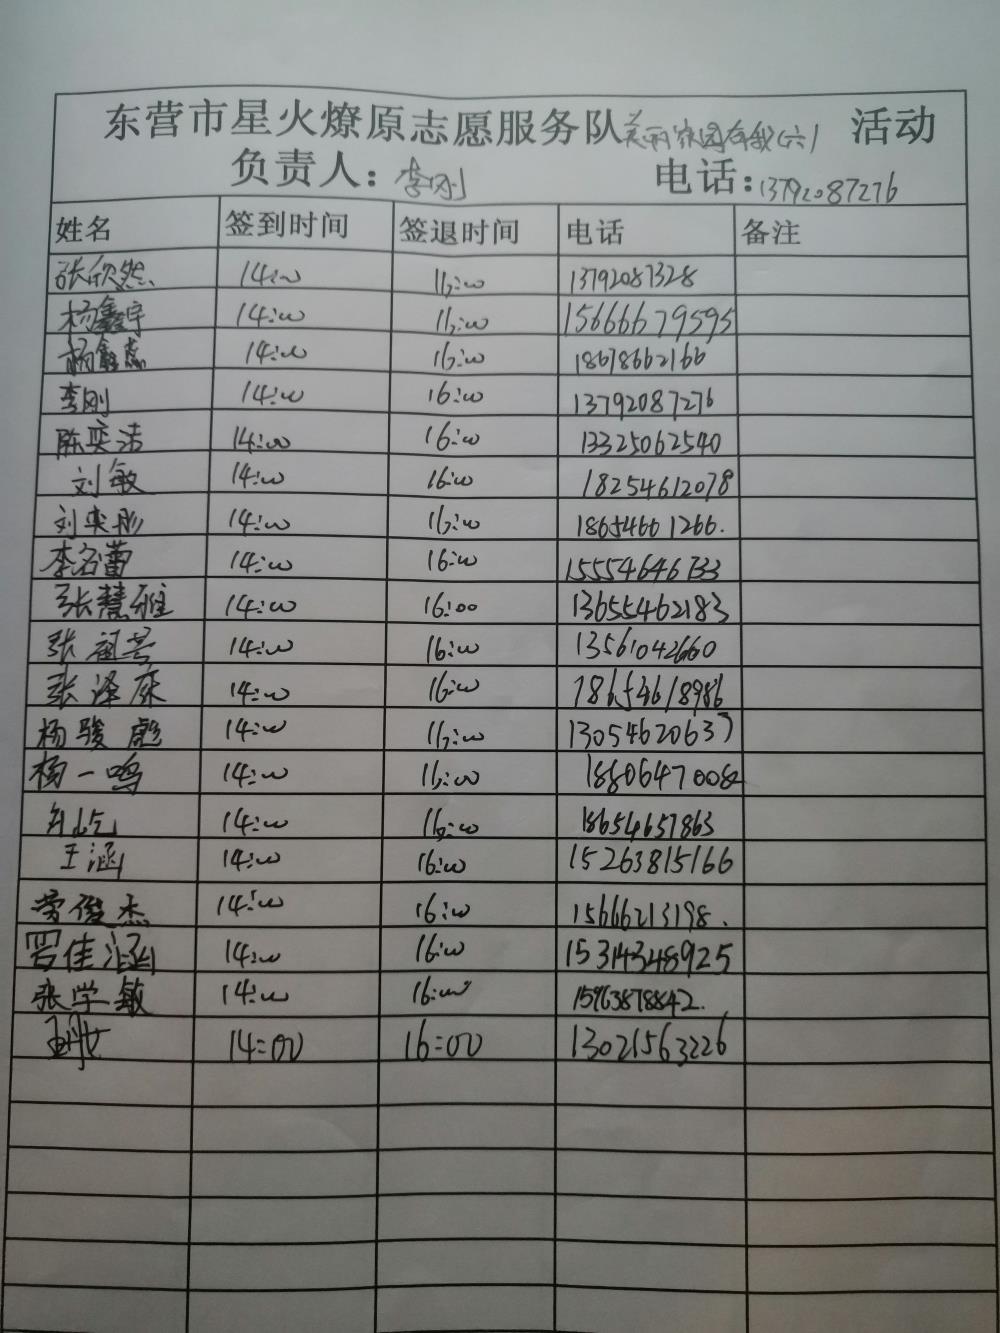 东营市星火燎原志愿服务队美丽家园有我(六)活动
负责人：李刚 电话：13792087276
姓名 签到时间 签退时间 电话 备注
张欣然 14:00 16:00 13792087328
杨鑫宇 14:00 16:00 15666679595
杨鑫蕊 14:00 16:00 18678662166
李刚 14:00 16:00 13792087276
陈奕洁 14:00 16:00 13325062540
刘敏 14:00 16:00 18254612078
刘奕彤 14:00 16:00 18654601266.
李名蕾 14:00 16:00 15554646733
张慧雅 14:00 16:00 13655462183
张祖 14:00 16:00 13561042660
张泽康 14:00 16:00 18654618986
杨骏彪 14:00 16:00 13054620637
杨一鸣 14:00 16:00 18806477008
14:00 16:00 18654657863
王涵 14:00 16:00 15263815166
劳俊杰 14:00 16:00 15666213198.
罗佳涵 14:00 16:00 15314348925
张学敏 14:00 16:00 15963878842.
14:00 16:00 13021563226